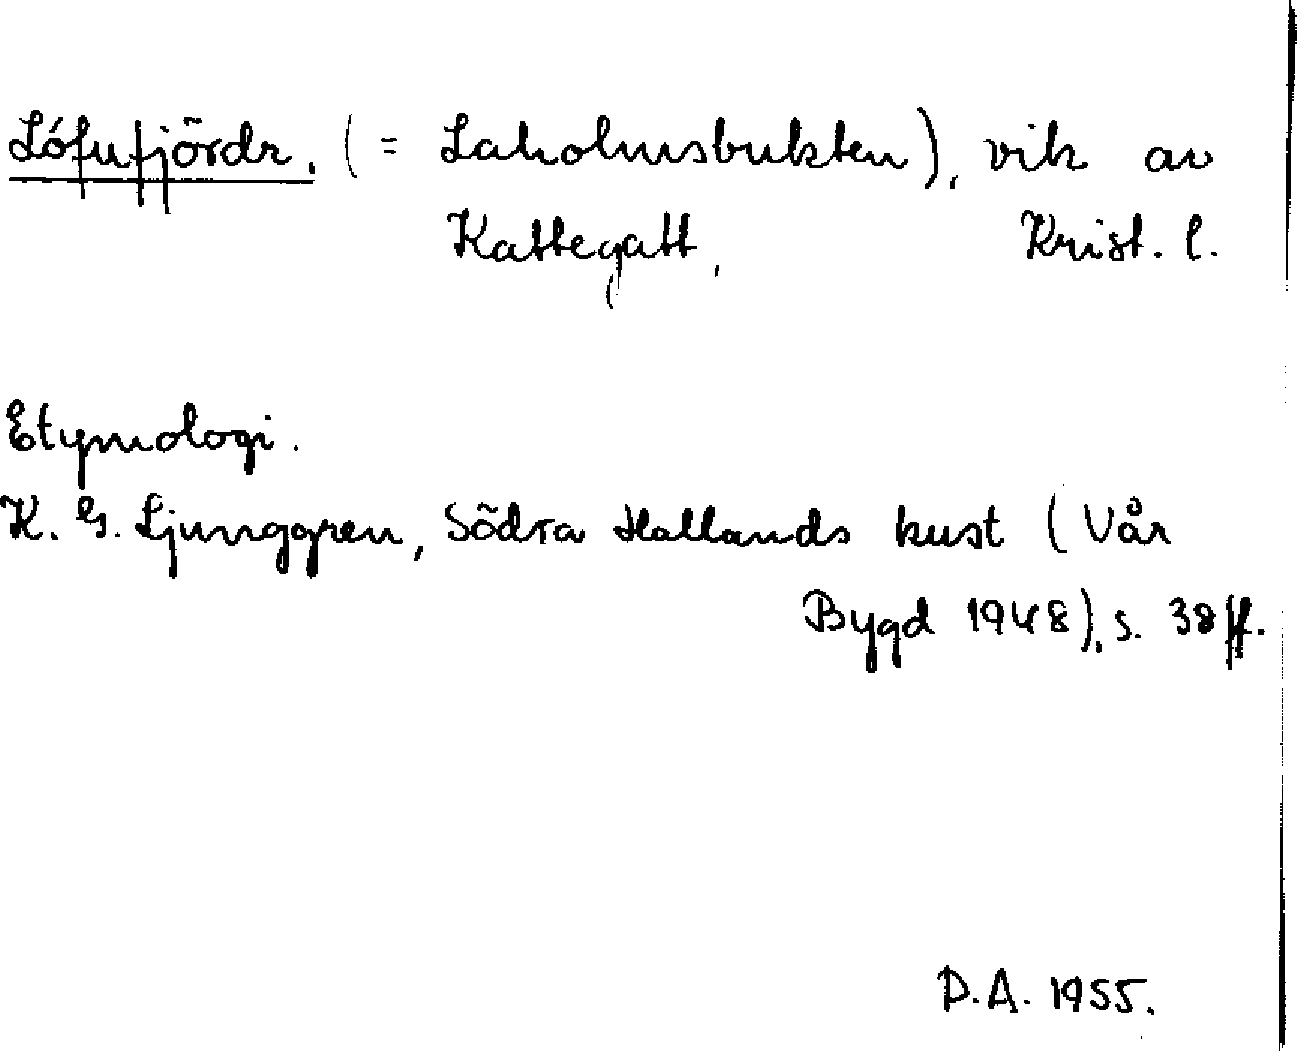 Lófufjördr. (= Laholmsbukten), vik av
Kattegatt, Krist. l.
Etymologi.
K. G. Ljunggren, Södra Hallands kust (Vår
Bygd 1948), s. 38 ff.
D.A. 1955.